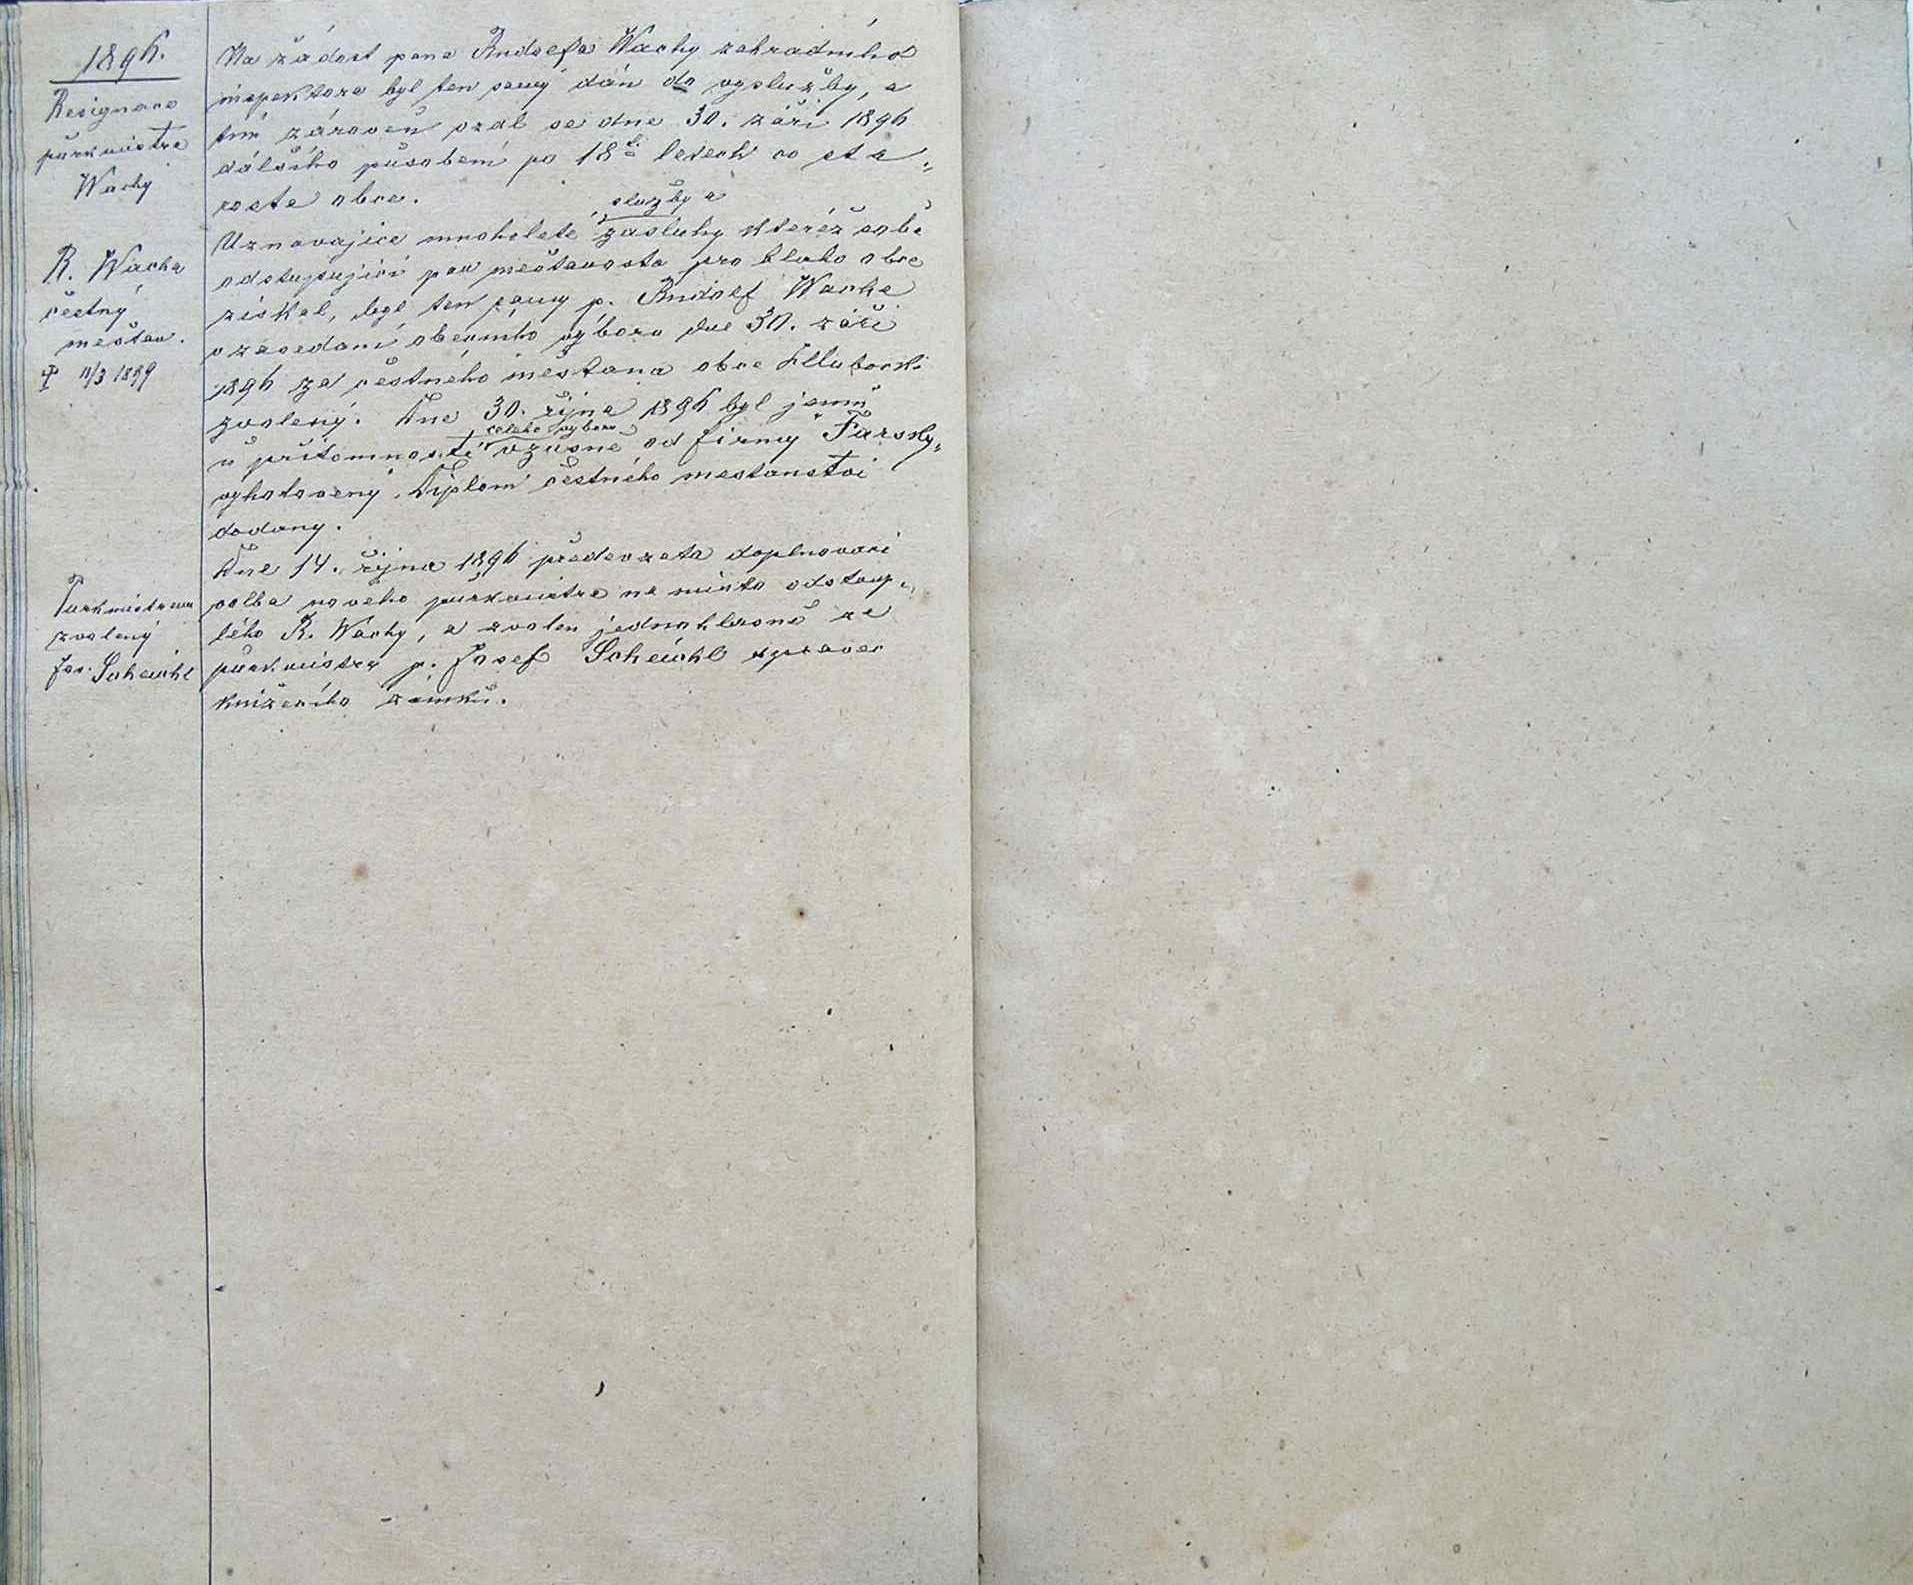 1896.
Resignace
purkmistra
Wachy
R. Wacha
čestný
mešťan.
11/3 1899
Purkmistrem
zvolený
Jos. Scheichl
Na žádost pana Rudolfa Wachy zahradního
inspektora byl ten samý dán do výslužby, a
tím zároveň vzal se dne 30. září 1896
dalšího působení po 18ti letech co sta„
rosta obce.
služby a
Uznavajíce mnoholeté zásluhy kteréž sobě
odstupující pan měšťanosta pro blaho obce
získal, byl ten samý p. Rudolf Wacha
v zasedaní obecního výboru dne 30. září
1896 za čestného měšťana obce Hluboské
zvolený. Dne 30. října 1896 byl jemu
celeho výboru
u přítomnosti vzusné od firmy Farský„
vyhotovený Diplom čestného mešťanství
dodaný.
Dne 14. října 1896 předevzata doplnovací
volba nového purkmistra na místo odstoup„
lého R. Wachy, a zvolen jednohlasně za
purkmistra p. Josef Scheichl správec
knížecího zámku.